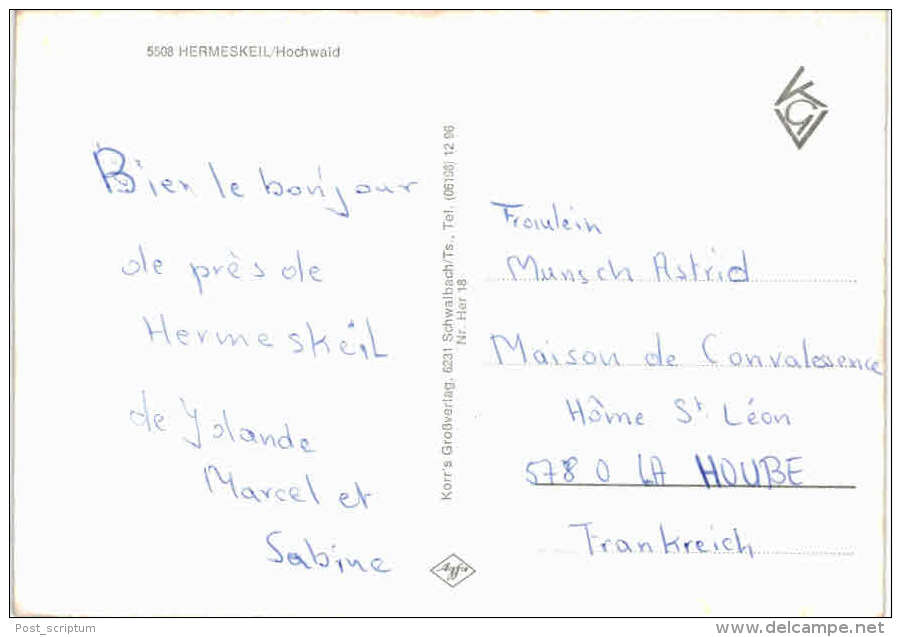 5508 HERMESKEIL/Hochwald
Bien le bonjour
de près de
Hermeskeil
de Yolande
Marcel et
Sabine
Korr's Großverlag, 6231 Schwalbach/Ts., Tel. (06196) 12 96
Nr. Her 18
KGV
Fraulein
Munsch Astrid
Maison de Convalesence
Hôme St Léon
578 0 LA HOUBE
Frankreich
Agfa
Post_scriptum
delcampe.net